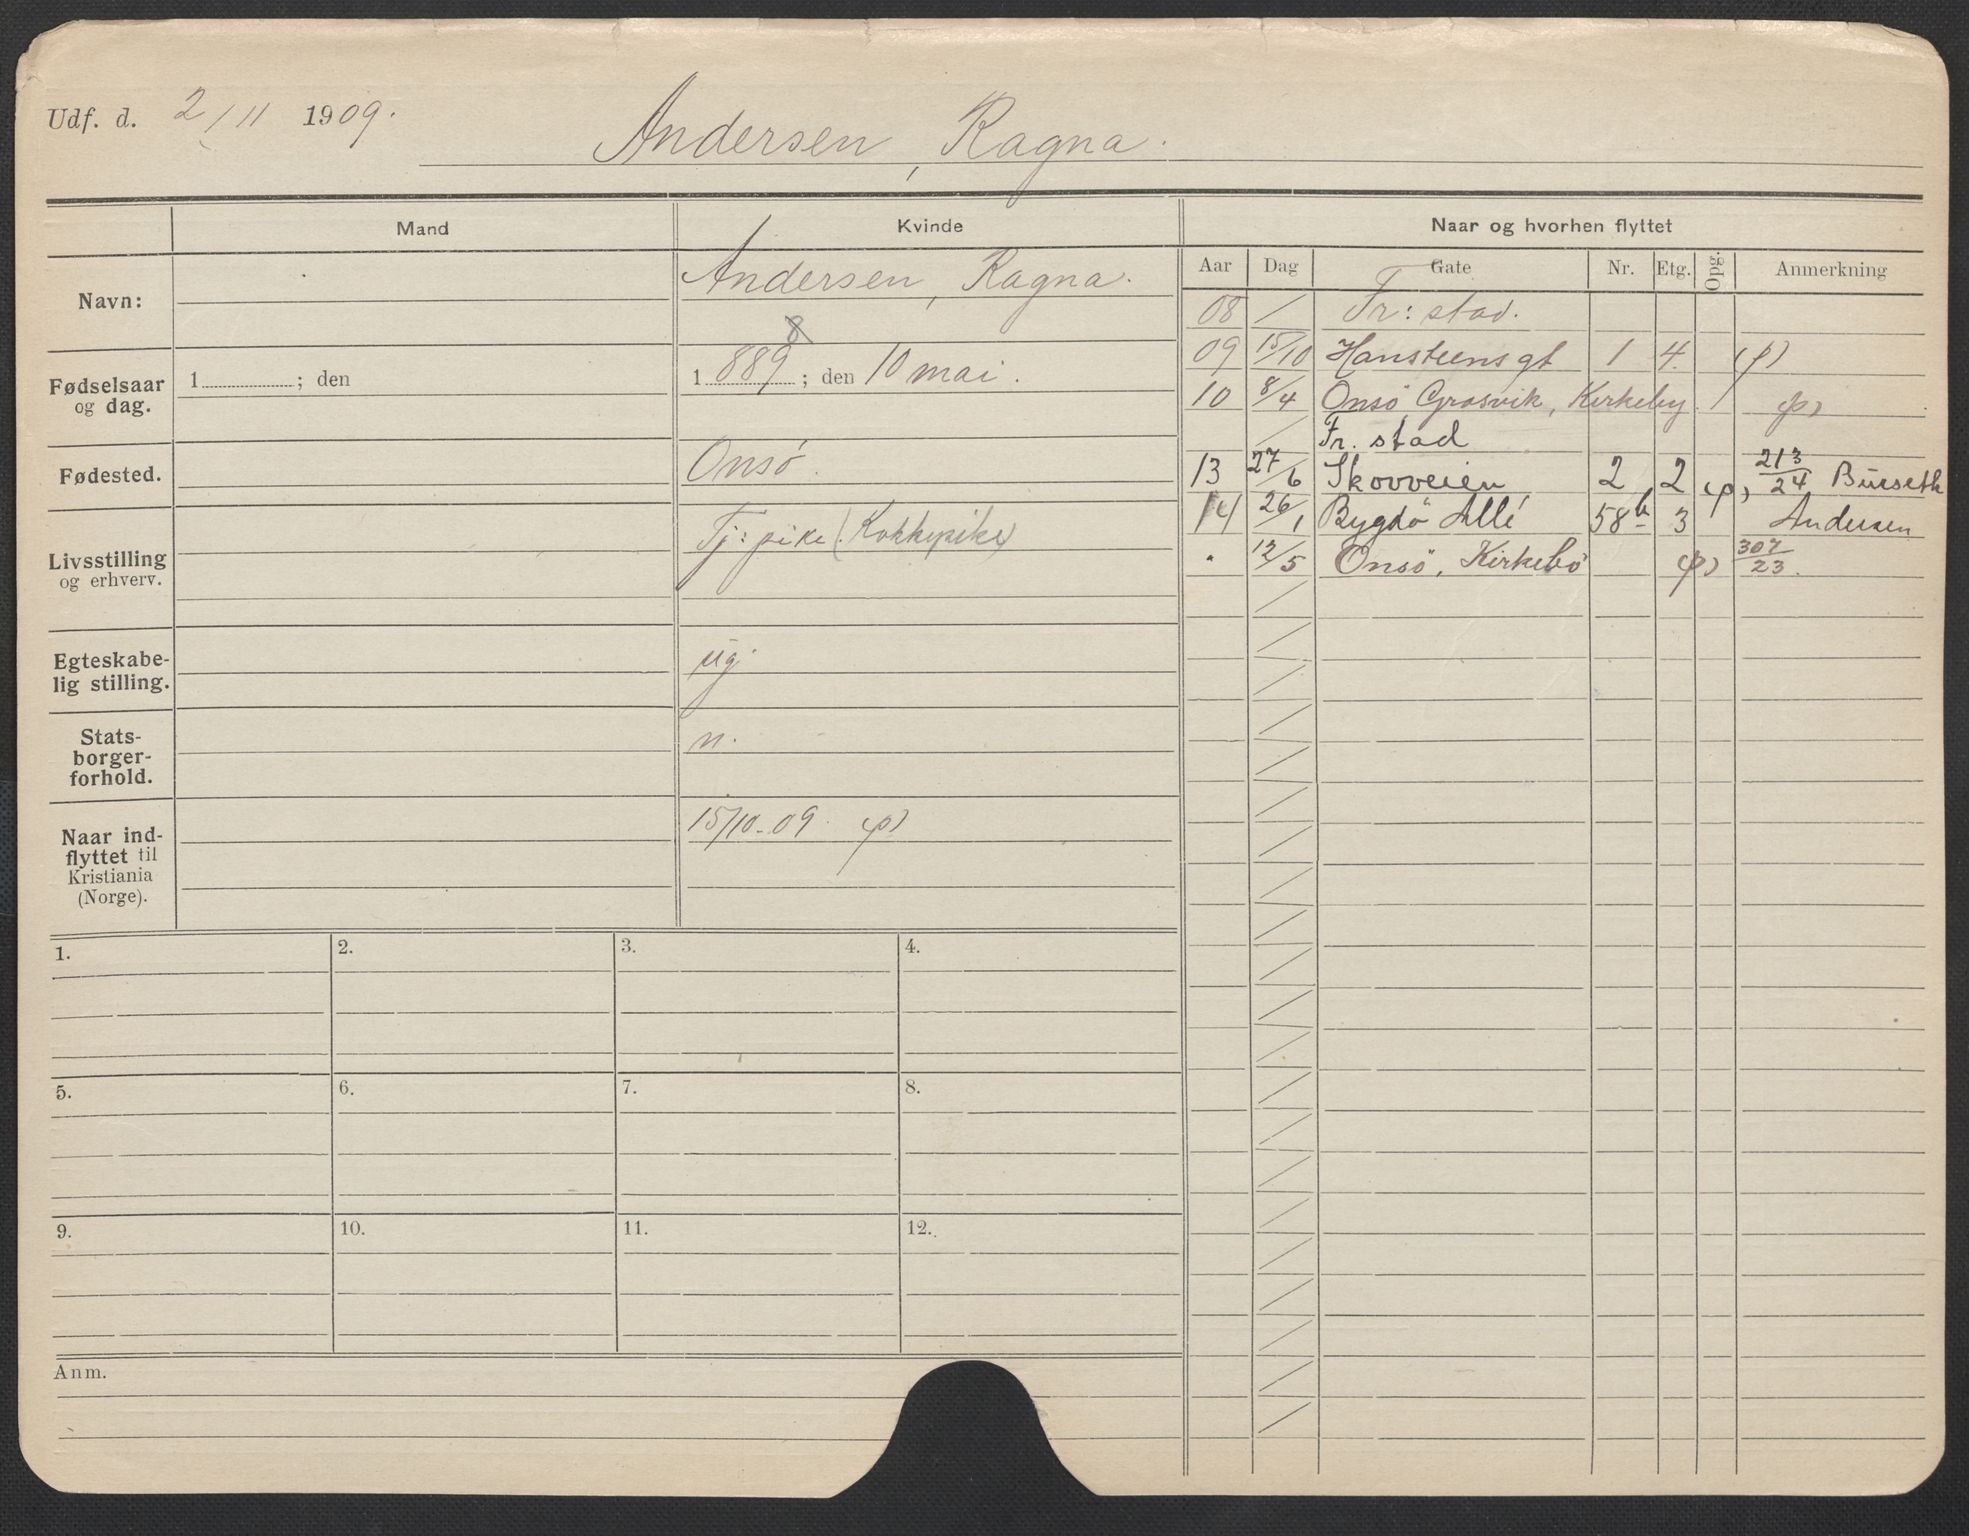 Udf. d. 2/11 1909.
Andersen, Ragna.
Mand
Kvinde
Naar og hvorhen flyttet
Aar Dag Gate Nr. Etg. Opg. Anmerkning
Navn:
Andersen, Ragna.
8
Fødselsaar og dag.
1 ; den
1 889 ; den 10 mai.
Fødested.
Onsö.
Livsstilling og erhverv.
Tj: pike (Kokkepike)
Egteskabe-
lig stilling.
ug.
Stats-
borger-
forhold.
n.
Naar ind-
flyttet til
Kristiania
(Norge).
15/10-09. (p)
08 / Fr: stad.
09 15/10 Hansteensgt 1 4. (p)
10 8/4 Onsö Grosvik, Kirkeby. (p)
/ Fr. stad
13 27/6 Skovveien 2 2 (p) 213/24
14 26/1 Bygdö Allé 58b 3 Andersen
" 12/5 Onsö, Kirkebö (p) 307/23.
1. 2. 3. 4.
5. 6. 7. 8.
9. 10. 11. 12.
Anm.